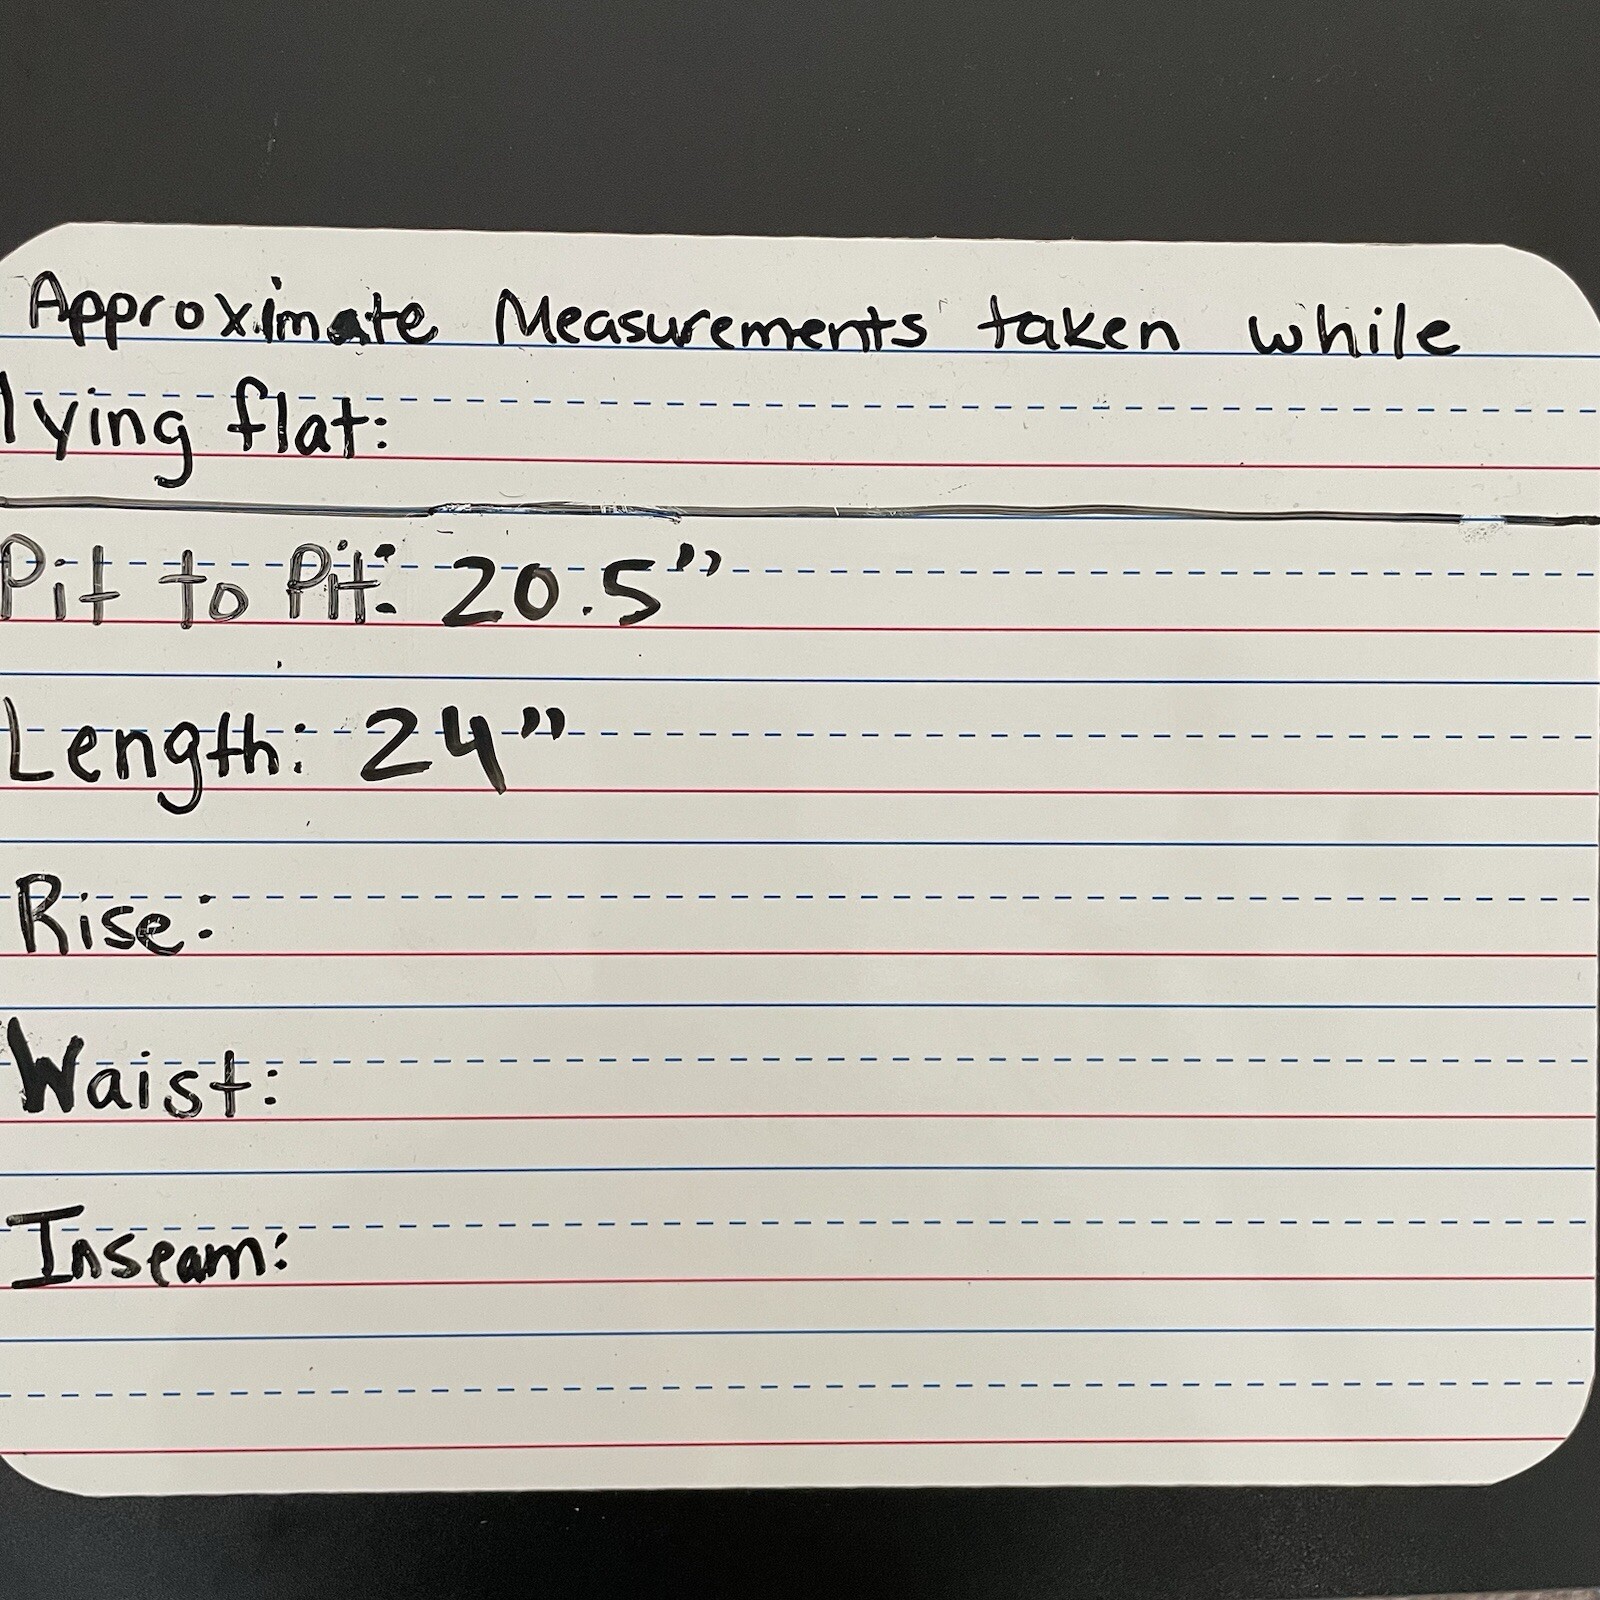 Approximate Measurements taken while
lying flat:
Pit to Pit: 20.5”
Length: 24”
Rise:
Waist:
Inseam: